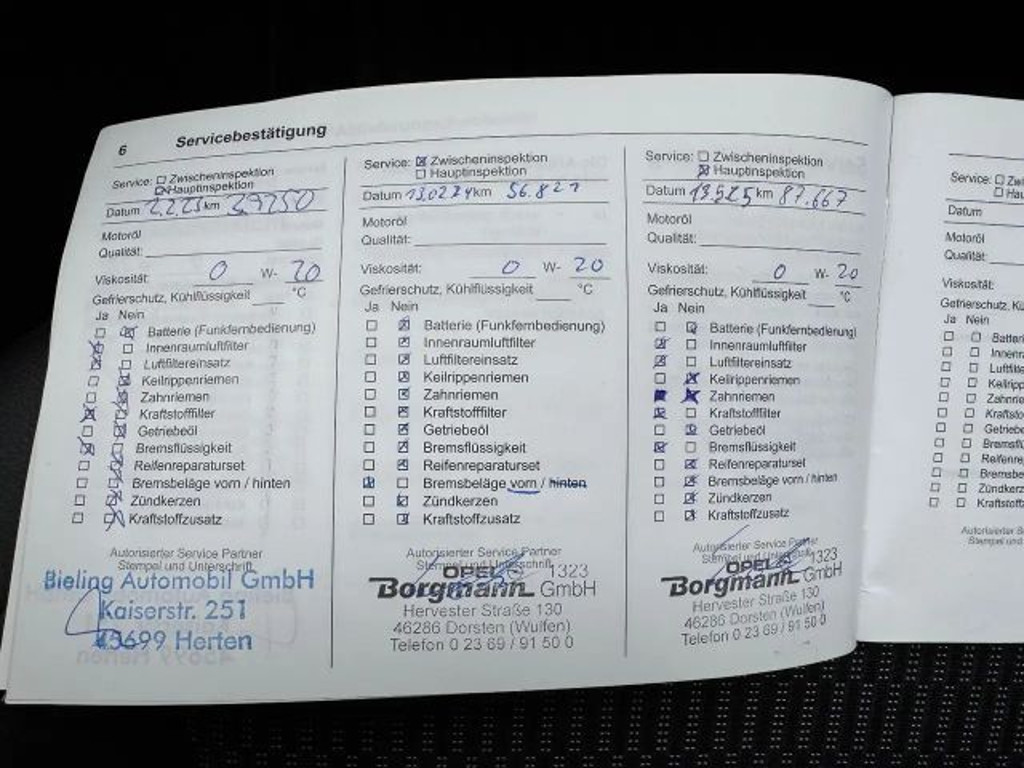 6 Servicebestätigung
Service: Zwischeninspektion
Hauptinspektion
Datum 2.2.23 km 39250
Motoröl
Qualität:
Viskosität: 0 W- 20
Gefrierschutz, Kühlflüssigkeit °C
Ja Nein
Batterie (Funkfernbedienung)
Innenraumluftfilter
Luftfiltereinsatz
Keilrippenriemen
Zahnriemen
Kraftstofffilter
Getriebeöl
Bremsflüssigkeit
Reifenreparaturset
Bremsbeläge vorn / hinten
Zündkerzen
Kraftstoffzusatz
Autorisierter Service Partner
Stempel und Unterschrift
Bieling Automobil GmbH
Kaiserstr. 251
45699 Herten
Service: Zwischeninspektion
Hauptinspektion
Datum 13.02.24 km 56.821
Motoröl
Qualität:
Viskosität: 0 W- 20
Gefrierschutz, Kühlflüssigkeit °C
Ja Nein
Batterie (Funkfernbedienung)
Innenraumluftfilter
Luftfiltereinsatz
Keilrippenriemen
Zahnriemen
Kraftstofffilter
Getriebeöl
Bremsflüssigkeit
Reifenreparaturset
Bremsbeläge vorn / hinten
Zündkerzen
Kraftstoffzusatz
Autorisierter Service Partner
Stempel und Unterschrift
OPEL 1323
Borgmann GmbH
Hervester Straße 130
46286 Dorsten (Wulfen)
Telefon 0 23 69 / 91 50 0
Service: Zwischeninspektion
Hauptinspektion
Datum km 87.667
Motoröl
Qualität:
Viskosität: 0 W- 20
Gefrierschutz, Kühlflüssigkeit °C
Ja Nein
Batterie (Funkfernbedienung)
Innenraumluftfilter
Luftfiltereinsatz
Keilrippenriemen
Zahnriemen
Kraftstofffilter
Getriebeöl
Bremsflüssigkeit
Reifenreparaturset
Bremsbeläge vorn / hinten
Zündkerzen
Kraftstoffzusatz
Autorisierter Service Partner
Stempel und Unterschrift
OPEL 1323
Borgmann GmbH
Hervester Straße 130
46286 Dorsten (Wulfen)
Telefon 0 23 69 / 91 50 0
Service: Zwi
Hau
Datum
Motoröl
Qualität:
Viskosität:
Gefrierschutz, Kü
Ja Nein
Batterie
Innenra
Luftfilte
Keilripp
Zahnrie
Kraftsto
Getriebe
Bremsfl
Reifenre
Bremsbe
Zündkerz
Kraftstoff
Autorisierter S
Stempel und